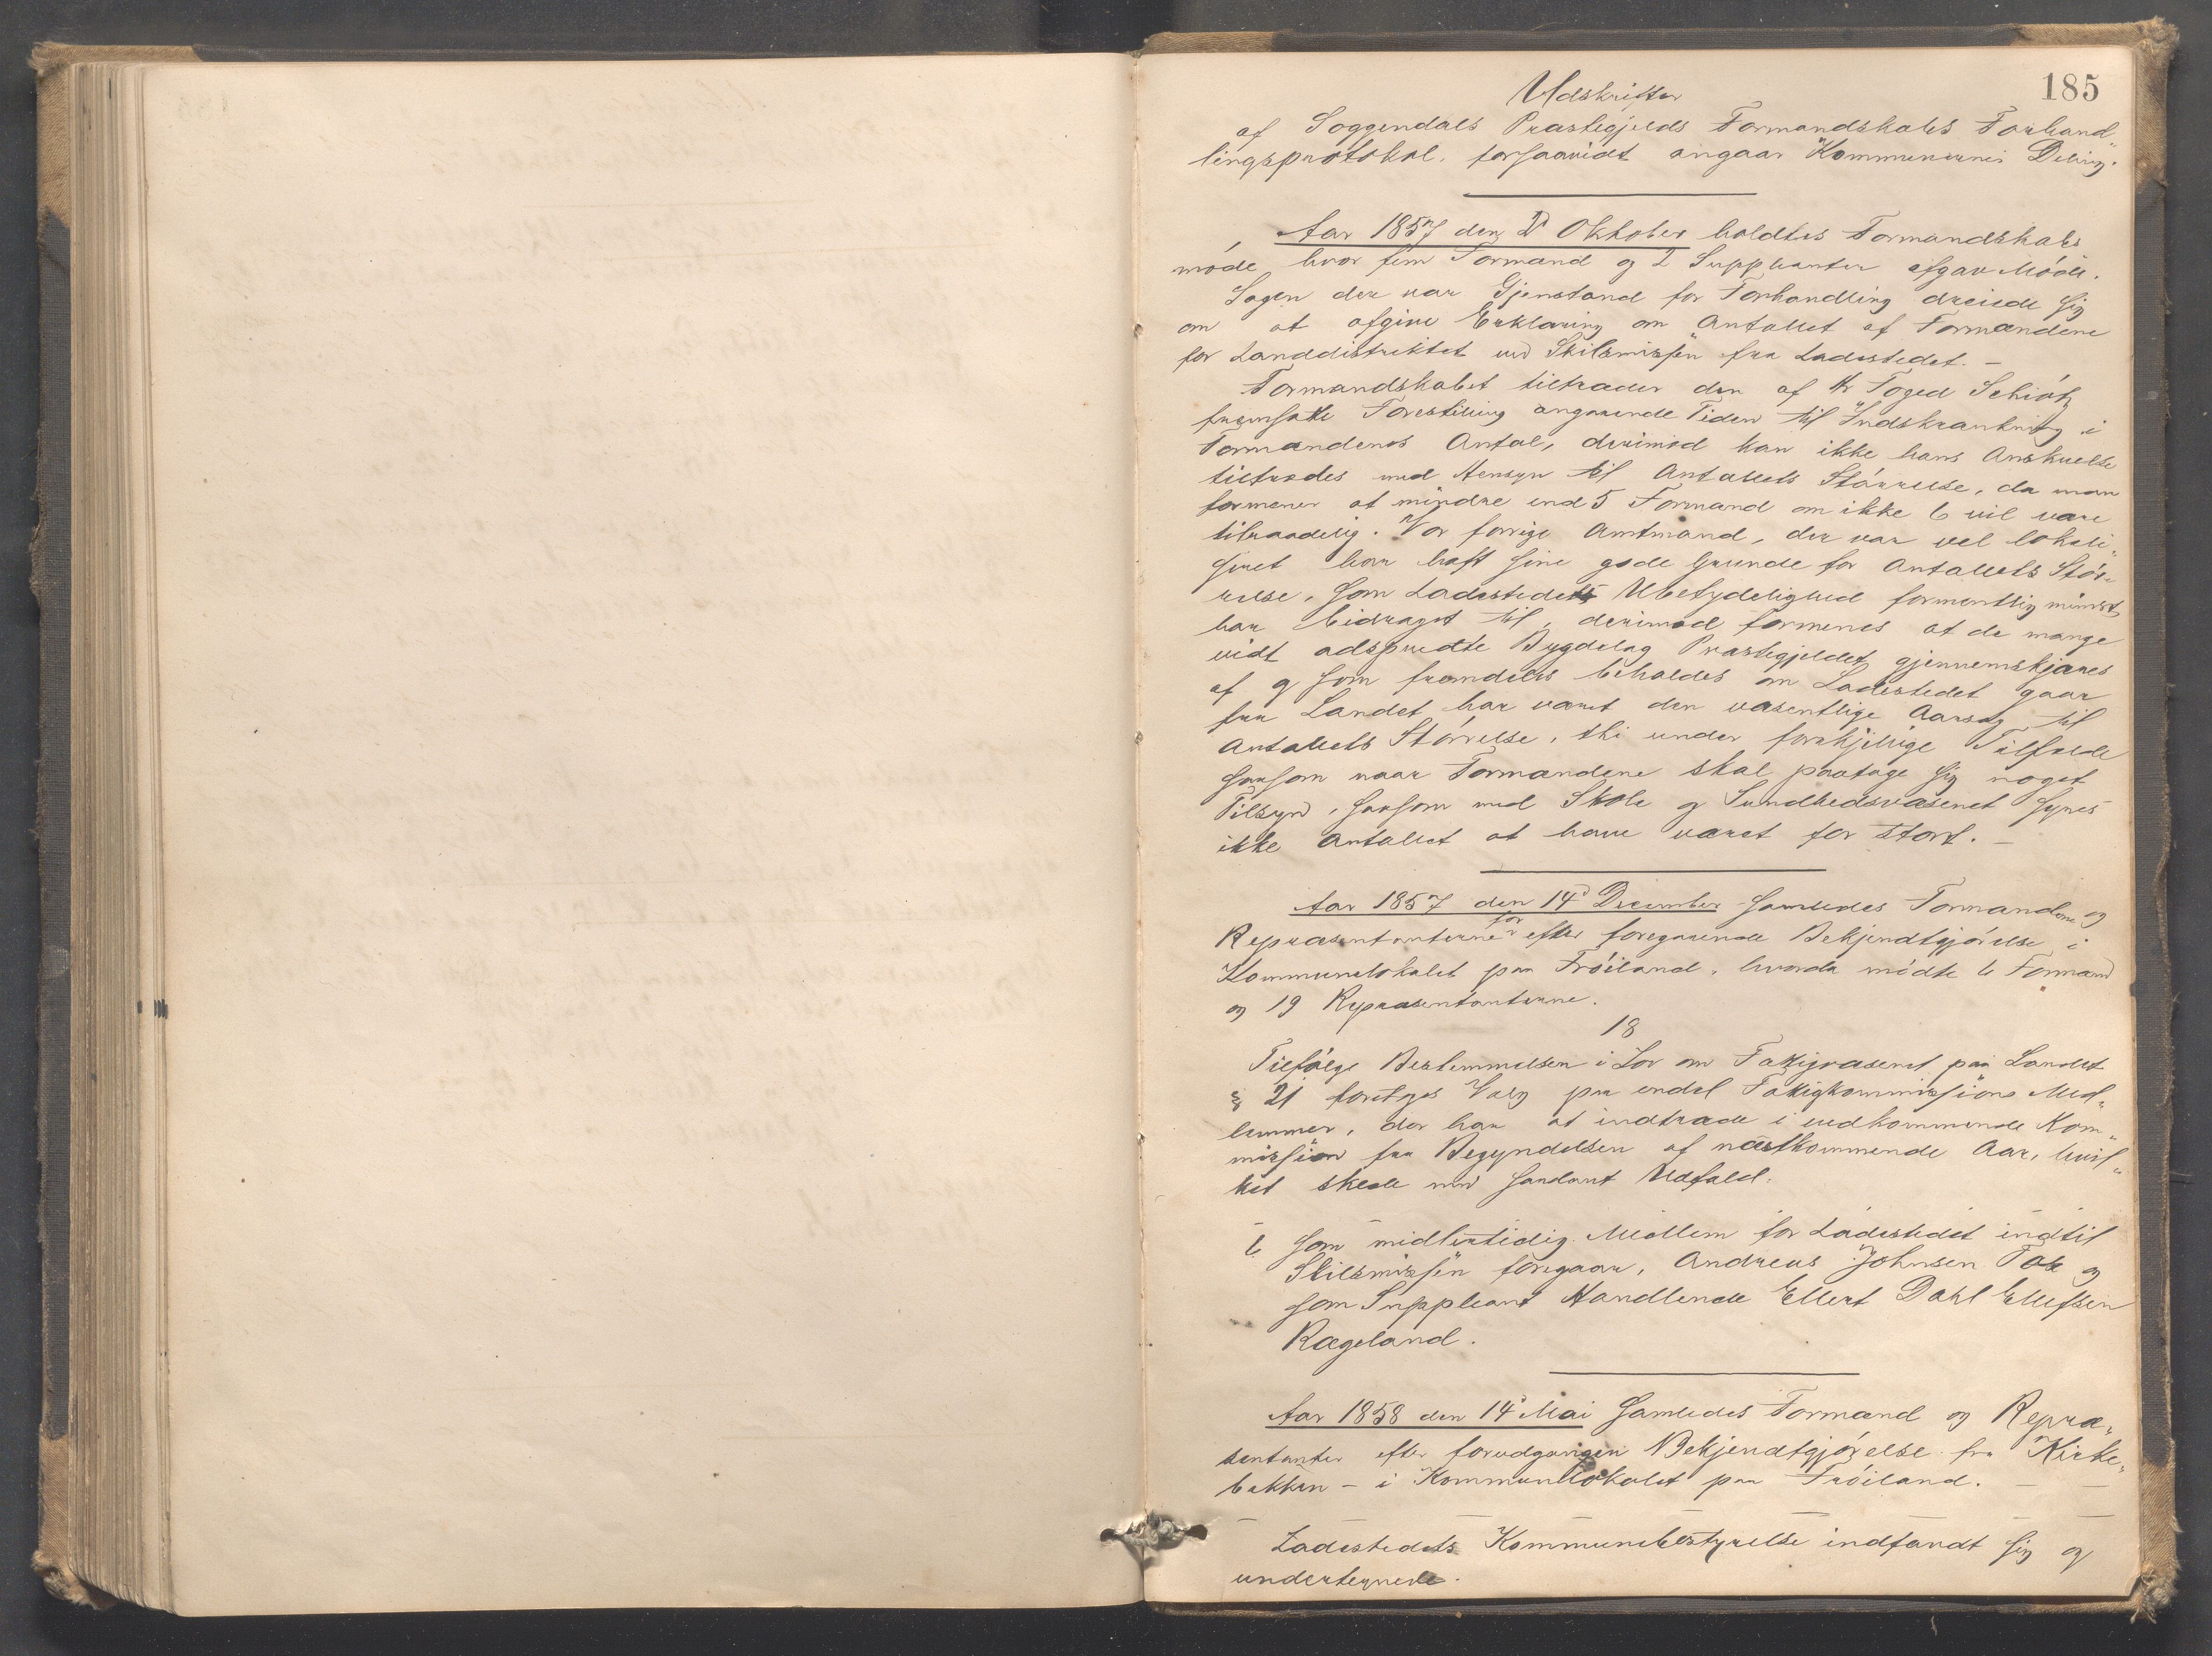 185
Udskrifter
af Soggendals Præstegjelds Formandskabs Forhand„
lingsprotokol, forsaavidt angaar Kommunernes Deling.
Aar 1857 den 2d Oktober holdtes Formandskabs
møde, hvor fem Formænd og 2 Suppleanter afgav Møde.
Sagen der var Gjenstand for Forhandling dreiede sig
om at afgive Erklæring om Antallet af Formændene
for Landdistriktet ved Skilsmissen fra Ladestedet. –
Formandskabet tiltræder den af Hr Foged Schiøtz
fremsatte Forestilling angaaende Tiden til Indskrænkning i
Formændenes Antal, derimod kan ikke hans Anskuelse
tiltrædes med Hensyn til Antallets Størrelse, da man
formener at mindre end 5 Formænd om ikke 6 vil være
tilraadelig. Vor forrige Amtmand, der var vel lokali„
seret har haft sine gode Grunde for Antallets Stør„
relse, som Ladestedets Ubetydelighed formentlig mindst
har bidraget til, derimod formenes at de mange
vidt adspredte Bygdelag Præstegjeldet gjennemskjæres
af og som fremdeles beholdes om Ladestedet gaar
fra Landet har været den væsentlige Aarsag til
Antallets Størrelse, thi under forskjellige Tilfælde
saasom naar Formændene skal paatage sig noget
Tilsyn, saasom med Skole og Sundhedsvæsenet synes
ikke Antallet at have været for stort. –
Aar 1857 den 14d December samledes Formændene og
Repræsentanterne efter foregaaende Bekjendtgjørelse i
Kommunelokalet paa Frøiland, hvorda mødte 6 Formænd
og 19 Repræsentanterne.
18
Tilfølge Bestemmelsen i Lov om Fattigvæsenet paa Landet
§ 21 foretoges Valg paa endel Fattigkommissions Med„
lemmer, der har at indtræde i vedkommende Kom„
mission fra Begyndelsen af næstkommende Aar, hvil„
ket skede med saadant Udfald:
6 Som midlertidig Medlem for Ladestedet indtil
Skilsmissen foregaar, Andreas Johnsen og
som Suppleant Handlende Ellert Dahl Ellefsen
Rægeland.
Aar 1858 den 14d Mai samledes Formænd og Repræ„
sentanter efter forudgangen Bekjendtgjørelse fra Kirke„
bakken – i Kommunelokalet paa Frøiland. – –
Ladestedets Kommunebestyrelse indfandt sig og
undertegnede.